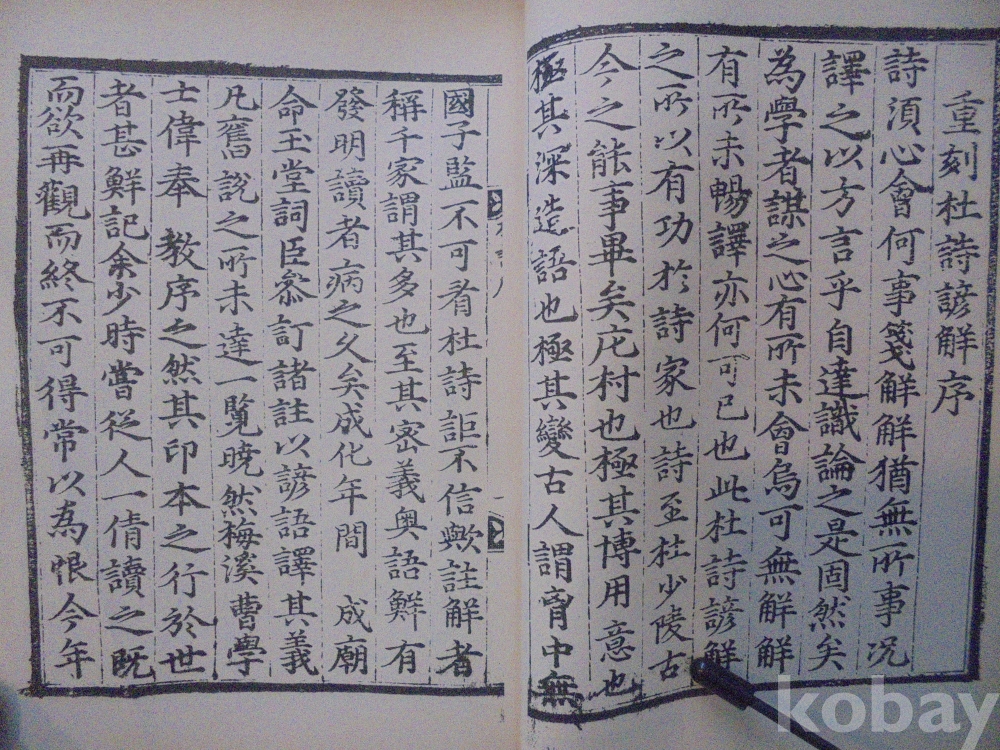 重刻杜詩諺解序
詩湏心會何事箋解解猶無所事况
譯之以方言乎自達識論之是固然矣
為學者謀之心有所未會烏可無解解
有所未暢譯亦何可已也此杜詩諺解
之所以有功於詩家也詩至杜少陵古
今之能事畢矣庀村也極其博用意也
極其深造語也極其變古人謂胷中無
國子監不可看杜詩詎不信歟註解者
稱千家謂其多也至其密義奧語鮮有
發明讀者病之久矣成化年間 成廟
命玉堂詞臣叅訂諸註以諺語譯其義
凡舊說之所未達一覽曉然梅溪曹學
士偉奉 教序之然其印本之行於世
者甚鮮記余少時嘗從人一倩讀之既
而欲再觀而終不可得常以為恨今年
kobay